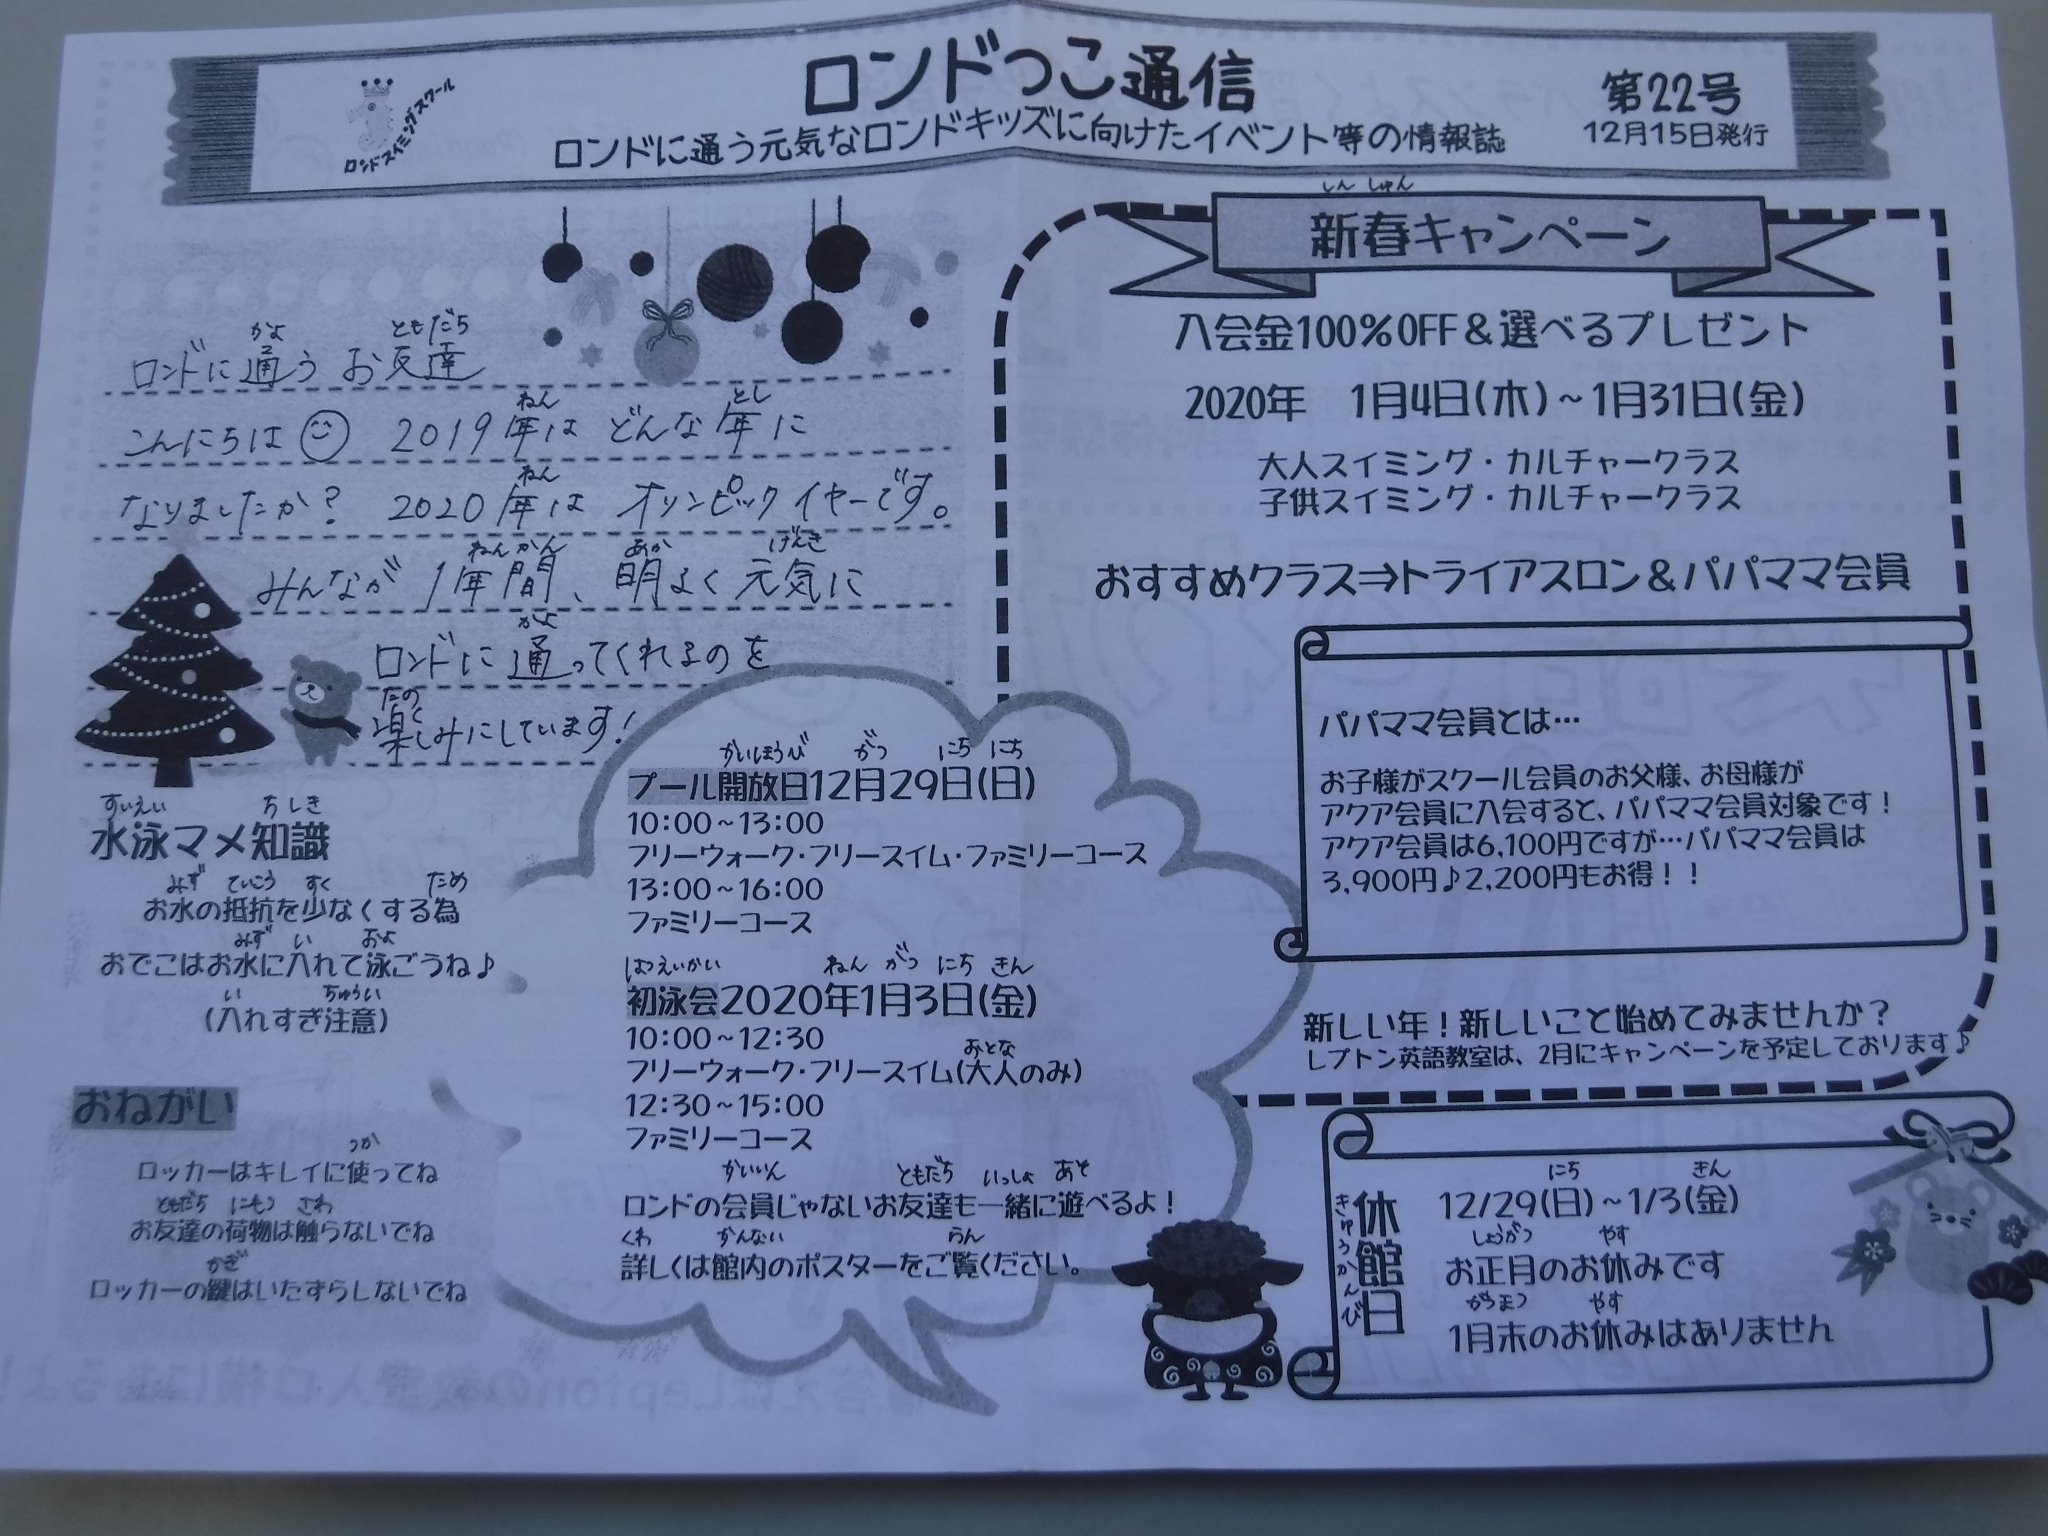 ロンドスイミングスクール
ロンドっこ通信
ロンドに通う元気なロンドキッズに向けたイベント等の情報誌
第22号
12月15日発行
かよ ともだち
ロンドに通う お友達
ねん とし
こんにちは 2019年は どんな年に
ねん
なりましたか? 2020年は オリンピックイヤーです。
ねんかん あか げんき
みんなが 1年間、明るく 元気に
かよ
ロンドに 通ってくれるのを
たの
楽しみにしています!
すいえい ちしき
水泳マメ知識
みず ていこう すく ため
お水の抵抗を少なくする為
みず い およ
おでこはお水に入れて泳ごうね♪
い ちゅうい
(入れすぎ注意)
おねがい
つか
ロッカーはキレイに使ってね
ともだち にもつ さわ
お友達の荷物は触らないでね
かぎ
ロッカーの鍵はいたずらしないでね
かいほうび がつ にち にち
プール開放日12月29日(日)
10:00~13:00
フリーウォーク・フリースイム・ファミリーコース
13:00~16:00
ファミリーコース
はつえいかい ねん がつ にち きん
初泳会2020年1月3日(金)
10:00~12:30
おとな
フリーウォーク・フリースイム(大人のみ)
12:30~15:00
ファミリーコース
かいいん ともだち いっしょ あそ
ロンドの会員じゃないお友達も一緒に遊べるよ!
くわ かんない らん
詳しくは館内のポスターをご覧ください。
しん しゅん
新春キャンペーン
入会金100%OFF&選べるプレゼント
2020年 1月4日(木)~1月31日(金)
大人スイミング・カルチャークラス
子供スイミング・カルチャークラス
おすすめクラス⇒トライアスロン&パパママ会員
パパママ会員とは…
お子様がスクール会員のお父様、お母様が
アクア会員に入会すると、パパママ会員対象です!
アクア会員は6,100円ですが…パパママ会員は
3,900円♪2,200円もお得!!
新しい年!新しいこと始めてみませんか?
レプトン英語教室は、2月にキャンペーンを予定しております♪
きゅうかんび
休館日
にち きん
12/29(日)~1/3(金)
しょうがつ やす
お正月のお休みです
がつまつ やす
1月末のお休みはありません